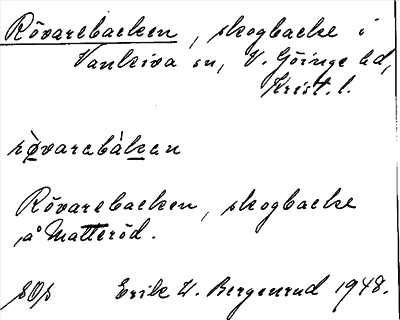 Rövarebacken, skogbacke i
Vankiva sn, V. Göinge hd,
Krist. l.
rø̀varebàkan
Rövarebacken, skogbacke
å Matteröd.
Erik W. Bergenrud 1948.